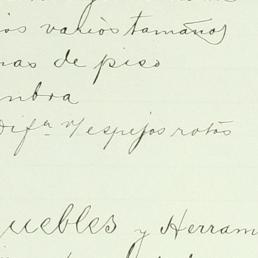 os varios tamaños
nas de piso
mbra
Difª v/ espejos rotos
uebles y Herram